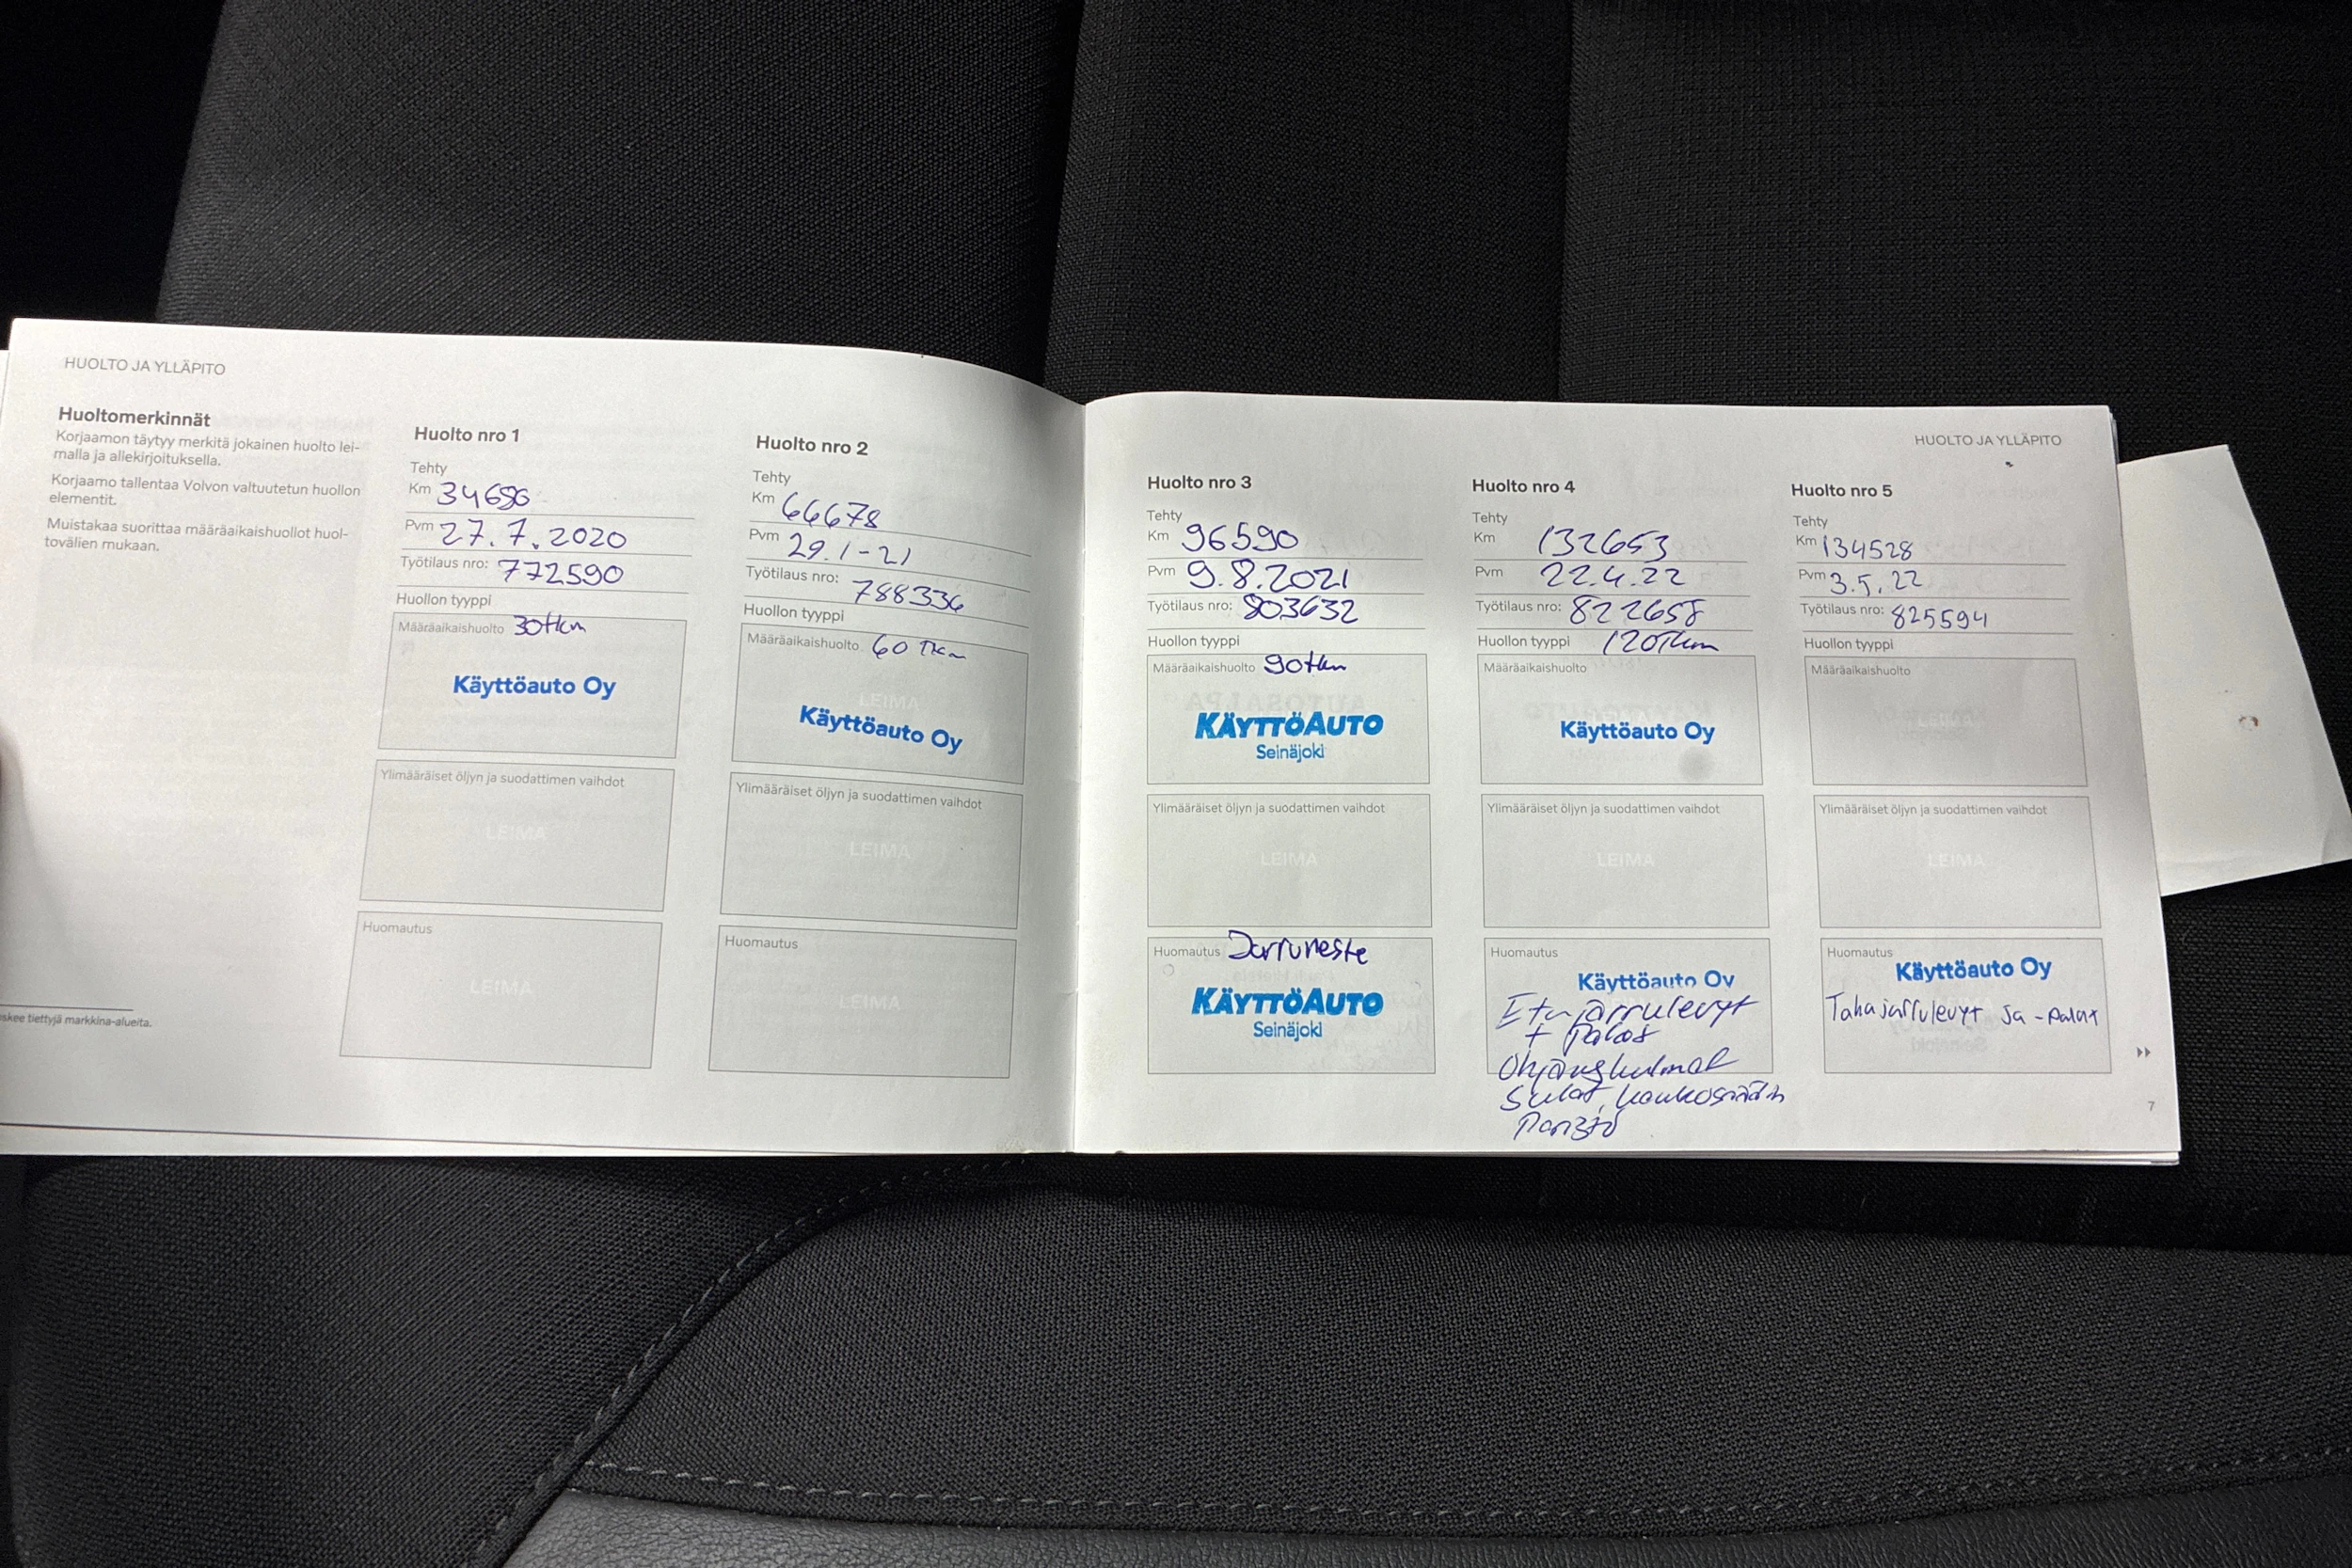 HUOLTO JA YLLÄPITO
Huoltomerkinnät
Korjaamon täytyy merkitä jokainen huolto lei-
malla ja allekirjoituksella.
Korjaamo tallentaa Volvon valtuutetun huollon
elementit.
Muistakaa suorittaa määräaikaishuollot huol-
tovälien mukaan.
skee tiettyjä markkina-alueita.
Huolto nro 1
Tehty
Km 34686
Pvm 27.7.2020
Työtilaus nro: 772590
Huollon tyyppi
Määräaikaishuolto 30tkm
Käyttöauto Oy
Ylimääräiset öljyn ja suodattimen vaihdot
LEIMA
Huomautus
LEIMA
Huolto nro 2
Tehty
Km 66678
Pvm 29.1-21
Työtilaus nro: 788336
Huollon tyyppi
Määräaikaishuolto 60 Tkm
LEIMA
Käyttöauto Oy
Ylimääräiset öljyn ja suodattimen vaihdot
LEIMA
Huomautus
LEIMA
Huolto nro 3
Tehty
Km 96590
Pvm 9.8.2021
Työtilaus nro: 803632
Huollon tyyppi
Määräaikaishuolto 90tkm
KÄYTTÖAUTO
Seinäjoki
Ylimääräiset öljyn ja suodattimen vaihdot
LEIMA
Huomautus Jarruneste
KÄYTTÖAUTO
Seinäjoki
HUOLTO JA YLLÄPITO
Huolto nro 4
Tehty
Km 132653
Pvm 22.4.22
Työtilaus nro: 822658
Huollon tyyppi 120Tkm
Määräaikaishuolto
Käyttöauto Oy
Ylimääräiset öljyn ja suodattimen vaihdot
LEIMA
Huomautus
Käyttöauto Oy
Etujarrulevyt
+ palat
Ohjauskulmat
Sulat, kaukosäädin
Paristo
Huolto nro 5
Tehty
Km 134528
Pvm 3.5.22
Työtilaus nro: 825594
Huollon tyyppi
Määräaikaishuolto
LEIMA
Ylimääräiset öljyn ja suodattimen vaihdot
LEIMA
Huomautus
Käyttöauto Oy
Takajarrulevyt ja -palat
7